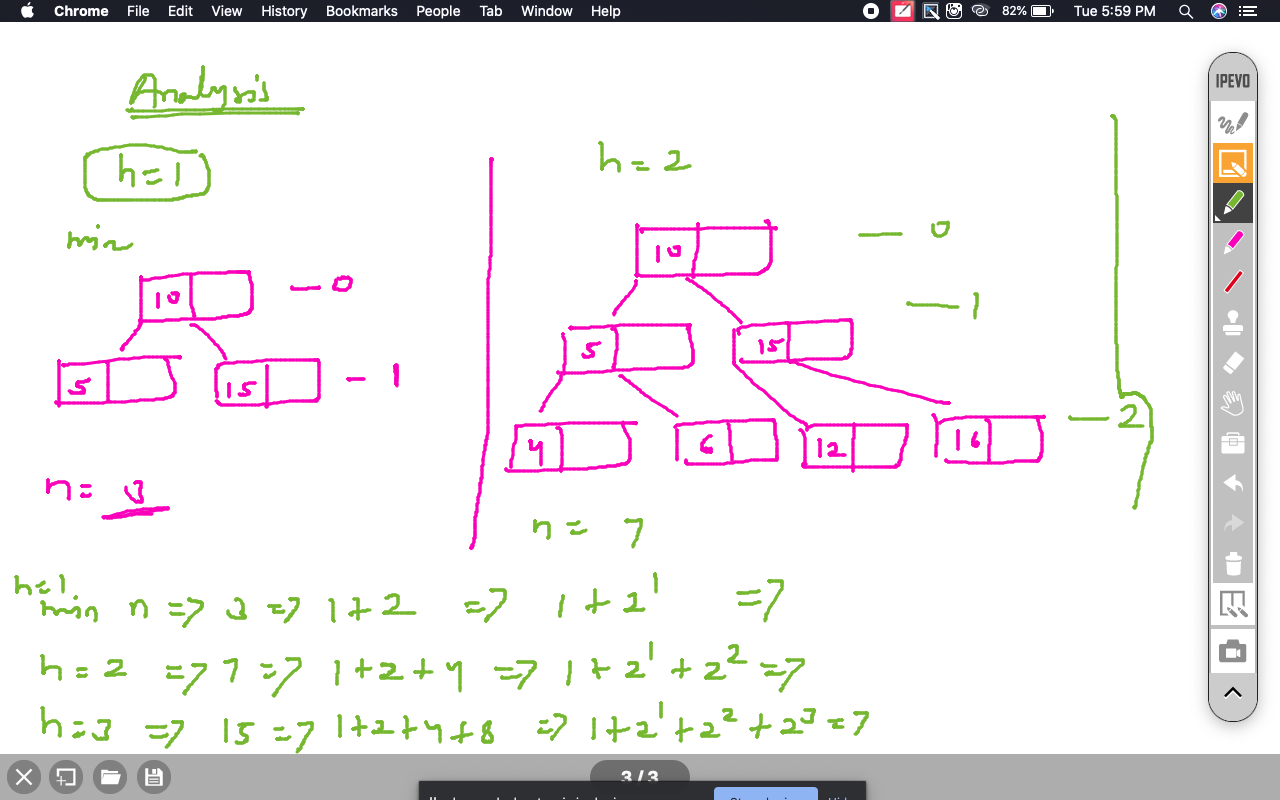 Chrome File Edit View History Bookmarks People Tab Window Help 82% Tue 5:59 PM
IPEVO
Analysis
h=1
min
10 — 0
5 15 — 1
n = 3
h = 2
10 — 0
— 1
5 15
4 6 12 16 — 2
n = 7
h=1
min n => 3 => 1 + 2 => 1 + 2¹ =>
h = 2 => 7 => 1 + 2 + 4 => 1 + 2¹ + 2² =>
h = 3 => 15 => 1 + 2 + 4 + 8 => 1 + 2¹ + 2² + 2³ =>
3 / 3